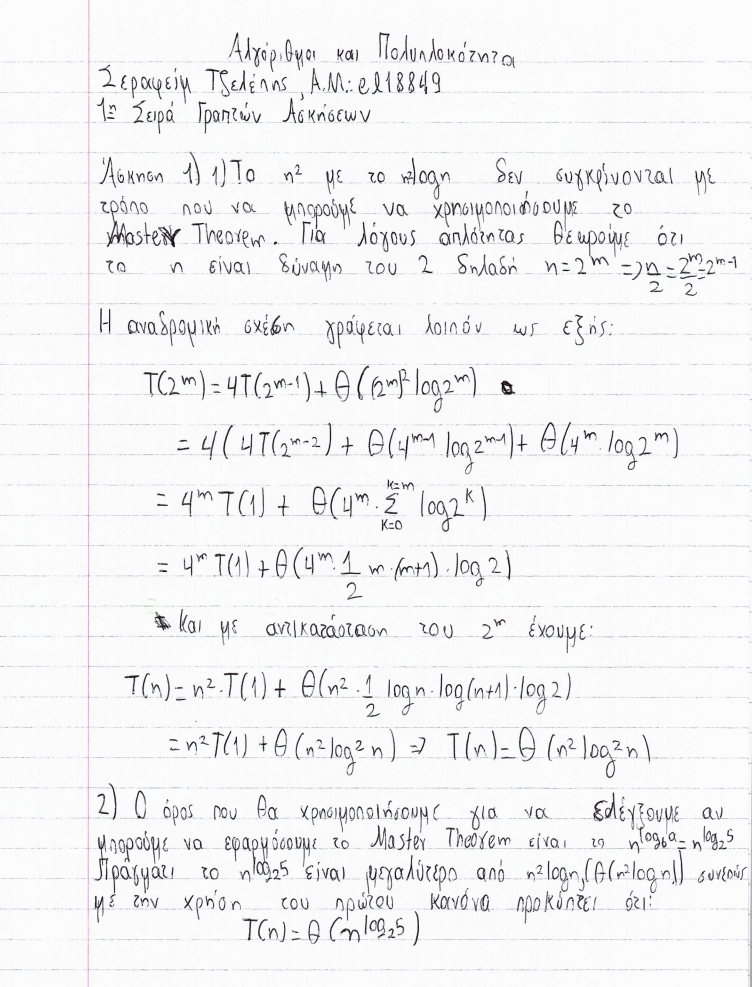 Αλγόριθμοι και Πολυπλοκότητα
Σεραφείμ Τζελέπης, Α.Μ.: el18849
1η Σειρά Γραπτών Ασκήσεων
Άσκηση 1) 1) Το n² με το n²logn δεν συγκρίνονται με
τρόπο που να μπορούμε να χρησιμοποιήσουμε το
Master Theorem. Για λόγους απλότητας θεωρούμε ότι
το n είναι δύναμη του 2 δηλαδή n=2^m => n/2 = 2^m/2 = 2^m-1
Η αναδρομική σχέση γράφεται λοιπόν ως εξής:
T(2^m) = 4T(2^m-1) + Θ((2^m)² log2^m)
= 4(4T(2^m-2) + Θ(4^m-1 log2^m-1) + Θ(4^m · log2^m)
= 4^m T(1) + Θ(4^m · Σ_{k=0}^{k=m} log2^k)
= 4^m T(1) + Θ(4^m · 1/2 m · (m+1) · log2)
Και με αντικατάσταση του 2^m έχουμε:
T(n) = n² · T(1) + Θ(n² · 1/2 logn · log(n+1) · log2)
= n²T(1) + Θ(n²log²n) => T(n) = Θ(n²log²n)
2) Ο όρος που θα χρησιμοποιήσουμε για να ελέγξουμε αν
μπορούμε να εφαρμόσουμε το Master Theorem είναι το n^log_b a = n^log_2 5
Πράγματι το n^log_2 5 είναι μεγαλύτερο από n²logn, (Θ(n²logn)) συνεπώς
με την χρήση του πρώτου κανόνα προκύπτει ότι:
T(n) = Θ(n^log_2 5)